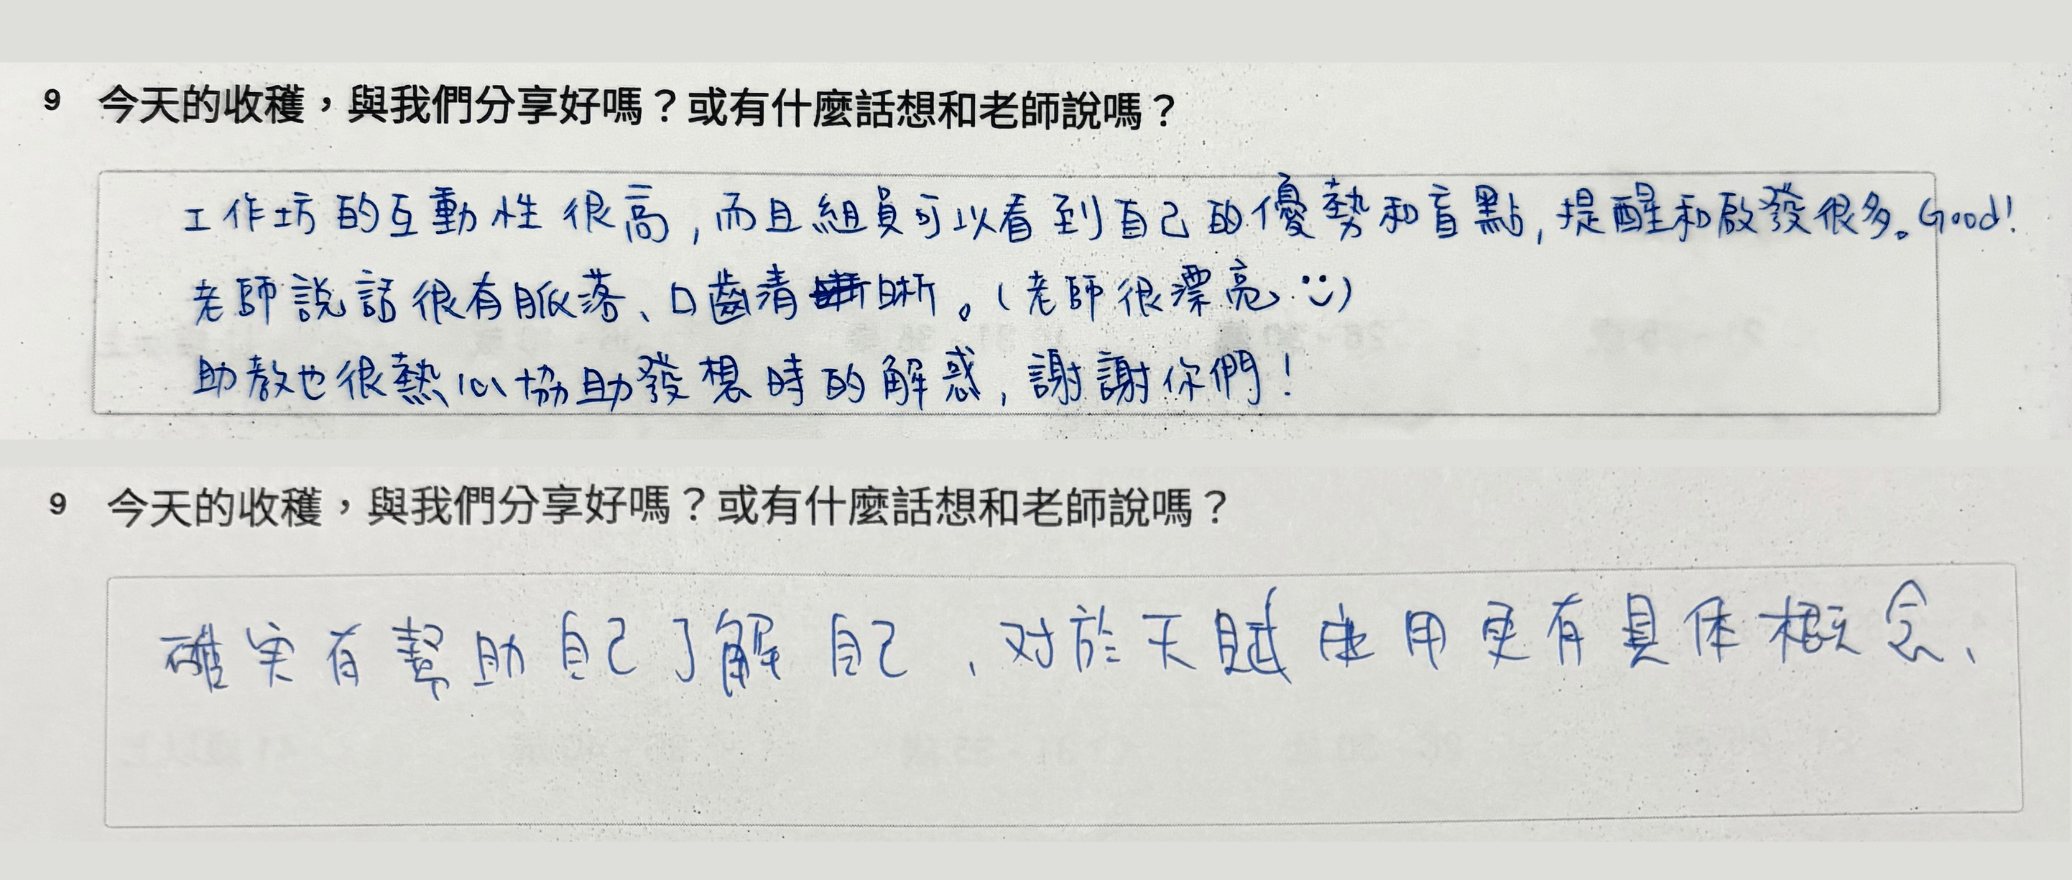 9 今天的收穫，與我們分享好嗎？或有什麼話想和老師說嗎？
工作坊的互動性很高,而且組員可以看到自己的優勢和盲點,提醒和啟發很多。Good!
老師說話很有脈落、口齒清晰。(老師很漂亮 :))
助教也很熱心協助發想時的解惑,謝謝你們!
9 今天的收穫，與我們分享好嗎？或有什麼話想和老師說嗎？
確实有幫助自己了解自己、对於天賦应用更有具体概念、